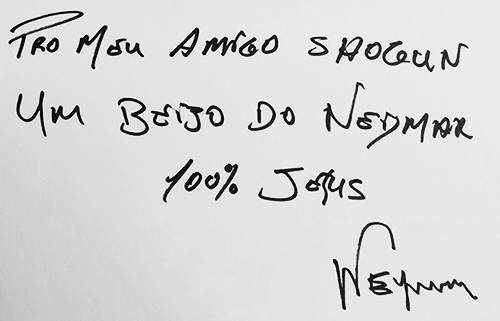 PRO MEU AMIGO SHOGUN
UM BEIJO DO NEYMAR
100% JESUS